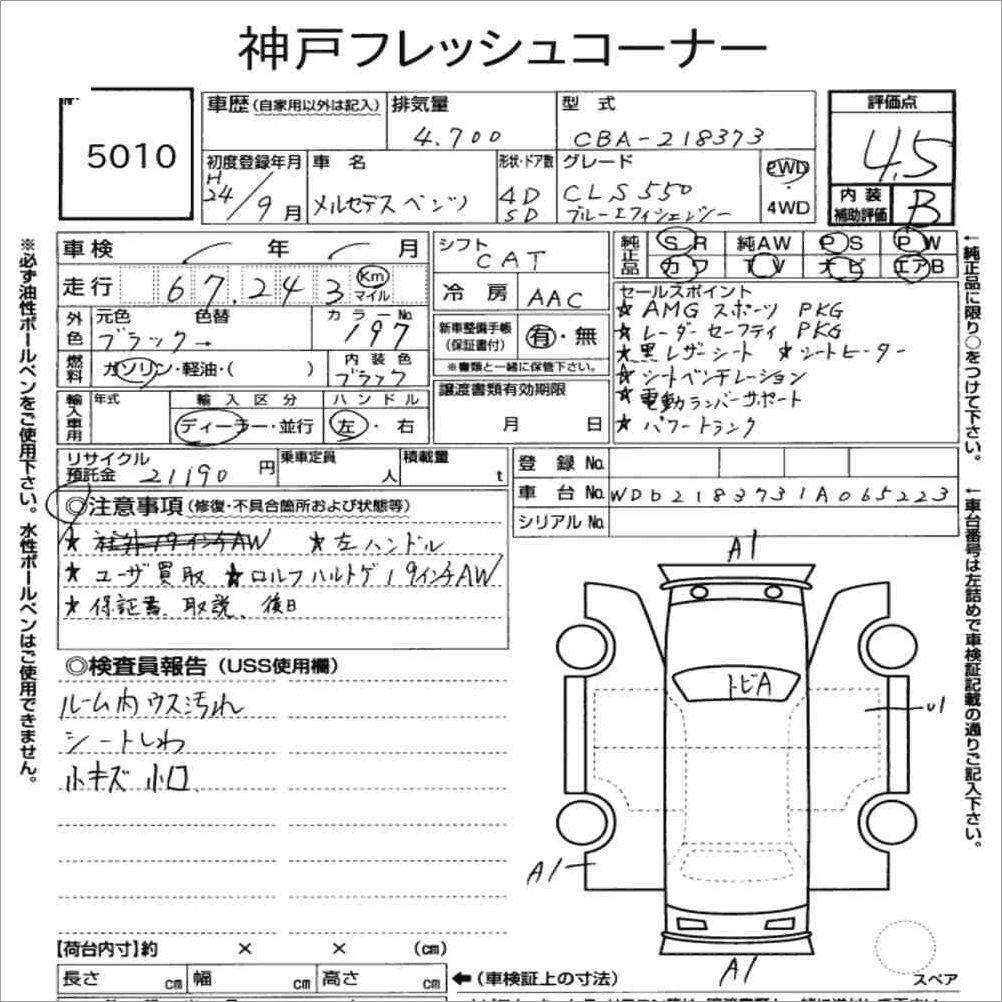 神戸フレッシュコーナー
5010
車歴(自家用以外は記入) 排気量 4.700
型式 CBA-218373
評価点 4.5
初度登録年月 H24/9月
車名 メルセデスベンツ
形状・ドア数 4D 5D
グレード CLS550 ブルーエフィシェンシー
2WD・4WD
内装補助評価 B
車検 年 月
シフト CAT
純正品 SR 純AW PS PW
カワ TV ナビ エアB
走行 67.243 Km マイル
冷房 AAC
外色 元色 ブラック→ 色替 カラーNo. 197
新車整備手帳(保証書付) 有・無
※書類と一緒に保管下さい。
燃料 ガソリン・軽油・( )
内装色 ブラック
譲渡書類有効期限 月 日
セールスポイント
★ AMG スポーツ PKG
★ レーダーセーフティ PKG
★ 黒レザーシート ★シートヒーター
★ シートベンチレーション
★ 電動ランバーサポート
★ パワートランク
輸入車用 年式 輸入区分 ディーラー・並行
ハンドル 左・右
リサイクル預託金 21190円 乗車定員 人 積載量 t
登録No.
車台No. WDD2183731A065223
シリアルNo.
◎注意事項(修復・不具合箇所および状態等)
★ 社外19インチAW ★左ハンドル
★ ユーザ買取 ★ロルフハルトゲ19インチAW
★ 保証書、取説、後日
◎検査員報告(USS使用欄)
ルーム内ウス汚れ
シートしわ
小キズ 小凹
A1
トビA
U1
A1
A1
スペア
【荷台内寸】約 × × (cm)
長さ cm 幅 cm 高さ cm ←(車検証上の寸法)
※必ず油性ボールペンをご使用下さい。水性ボールペンはご使用できません。
←純正品に限り○をつけて下さい。
←車台番号は左詰めで車検証記載の通りご記入下さい。